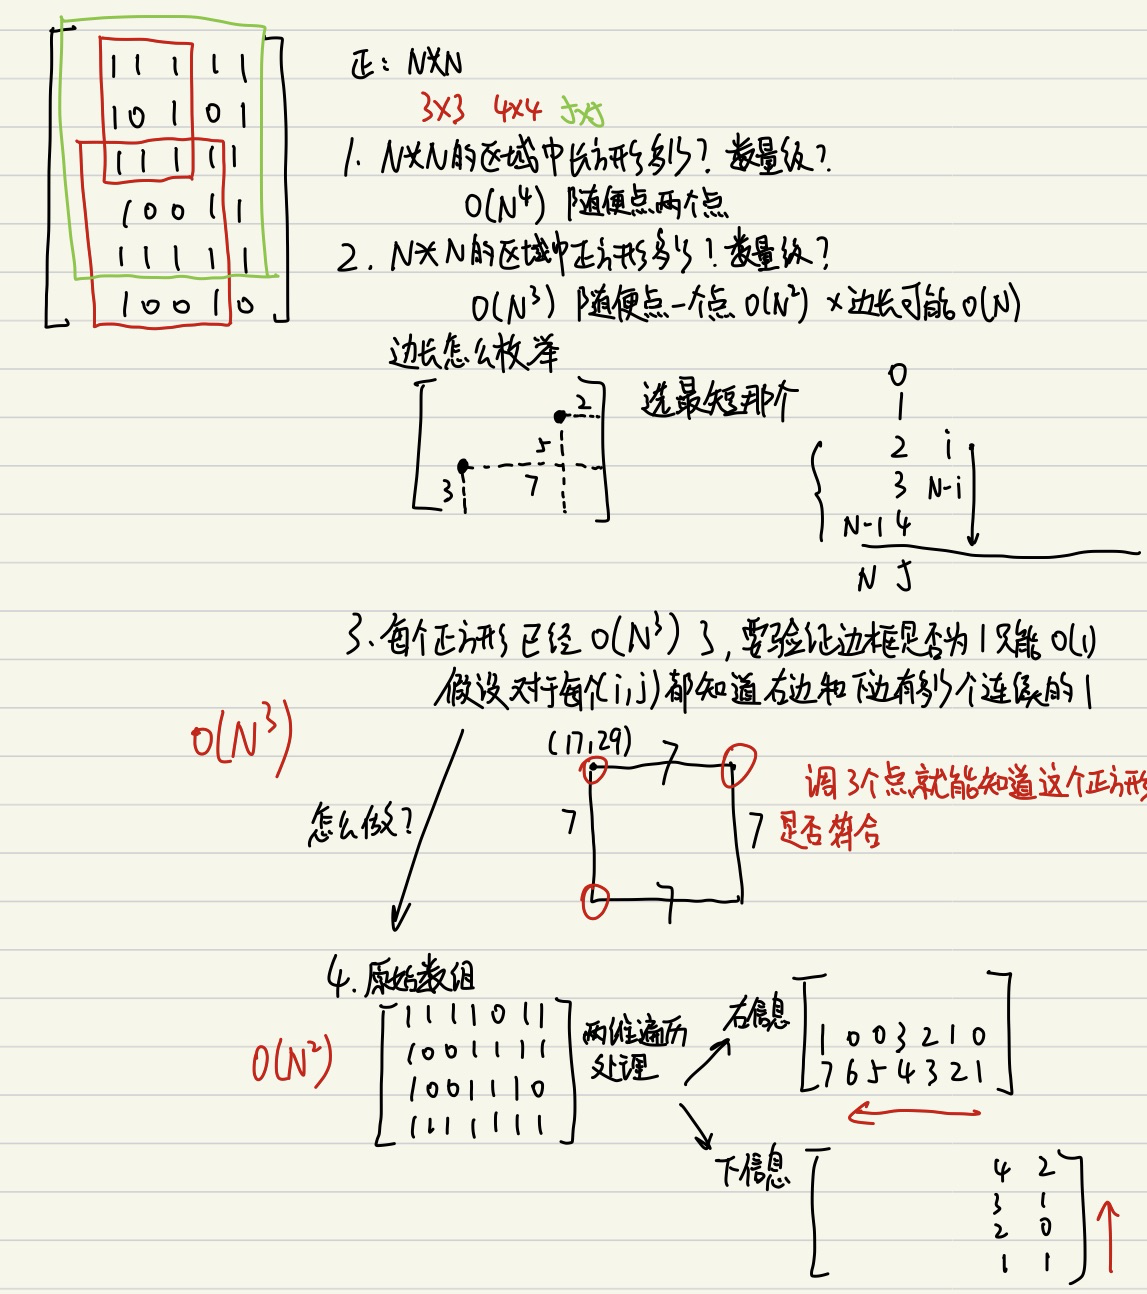 1 1 1 1 1
1 0 1 0 1
1 1 1 1 1
1 0 0 1 1
1 1 1 1 1
1 0 0 1 0
正: N*N
3x3 4x4 5x5
1. N*N的区域中长方形多少? 数量级?
O(N⁴) 随便点两个点
2. N*N的区域中正方形多少? 数量级?
O(N³) 随便点一个点 O(N²) x边长可能O(N)
边长怎么枚举
2
5
3 7
选最短那个
0
1
2 i
3 N-i
N-1 4
N 5
3.每个正方形已经O(N³)了,要验证边框是否为1只能O(1)
假设对于每个(i,j)都知道右边和下边有多少个连续的1
O(N³)
怎么做?
(17,29) 7
7 7
7
调3个点就能知道这个正方形
是否符合
4.原始数组
O(N²)
1 1 1 1 0 1 1
1 0 0 1 1 1 1
1 0 0 1 1 1 0
1 1 1 1 1 1 1
两维遍历
处理
右信息
1 0 0 3 2 1 0
7 6 5 4 3 2 1
下信息
4 2
3 1
2 0
1 1